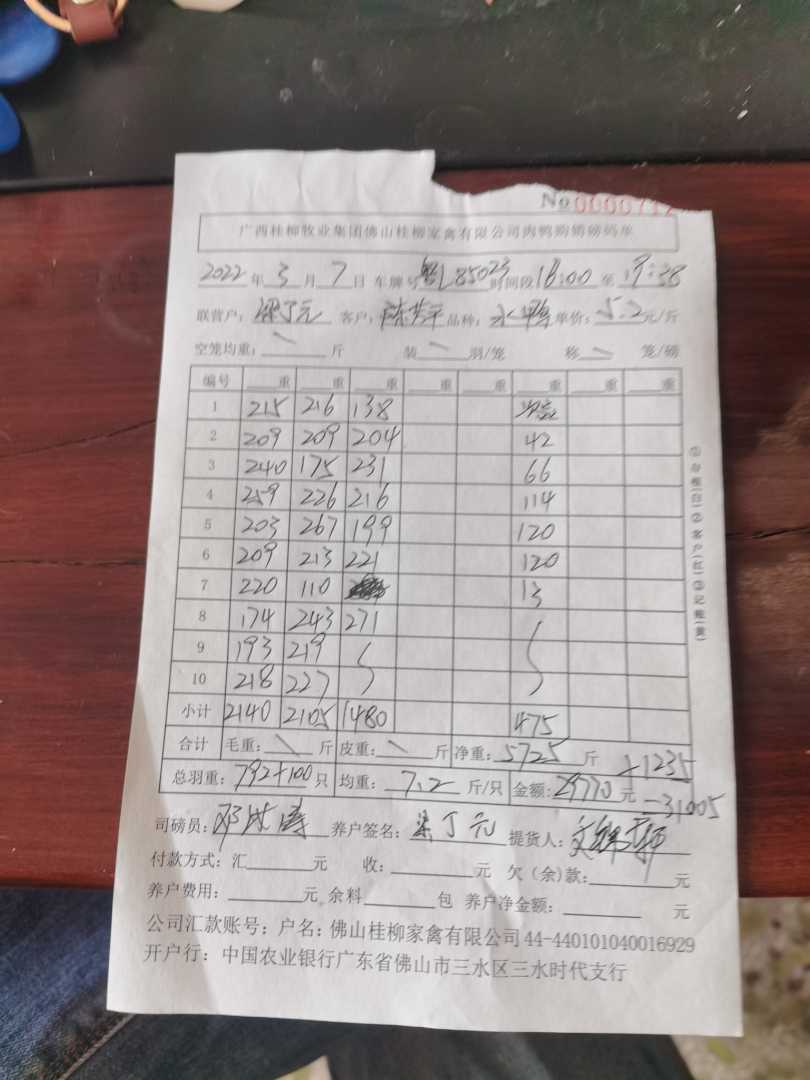 No 0000712
广西桂柳牧业集团佛山桂柳家禽有限公司肉鸭购销磅码单
2022年3月7日 车牌号 粤L85023 时间段 18:00 至 19:38
联营户：梁丁元 客户：品种：水鸭 单价：5.2元/斤
空笼均重：\ 斤 装 \ 羽/笼 称 \ 笼/磅
编号 重 重 重 重 重 重 重 重
1 215 216 138
2 209 209 204 42
3 240 175 231 66
4 259 226 216 114
5 203 267 199 120
6 209 213 221 120
7 220 110 13
8 174 243 271
9 193 219
10 218 227
小计 2140 2105 1480 475
合计 毛重：\ 斤 皮重：\ 斤 净重：5725 斤 +1235
总羽重：792+100 只 均重：7.2 斤/只 金额：29770 元 =31005
司磅员： 养户签名：梁丁元 提货人：
付款方式：汇 元 收： 元 欠（余）款： 元
养户费用： 元 余料 包 养户净金额： 元
公司汇款账号：户名：佛山桂柳家禽有限公司 44-440101040016929
开户行：中国农业银行广东省佛山市三水区三水时代支行
①存根(白)②客户(红)③记账(黄)